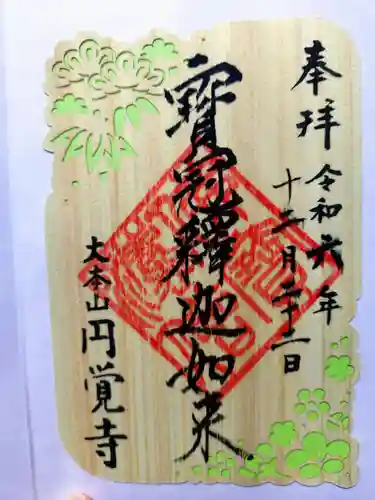 奉拝
令和六年
十二月二十二日
寳冠釋迦如来
大本山円覚寺